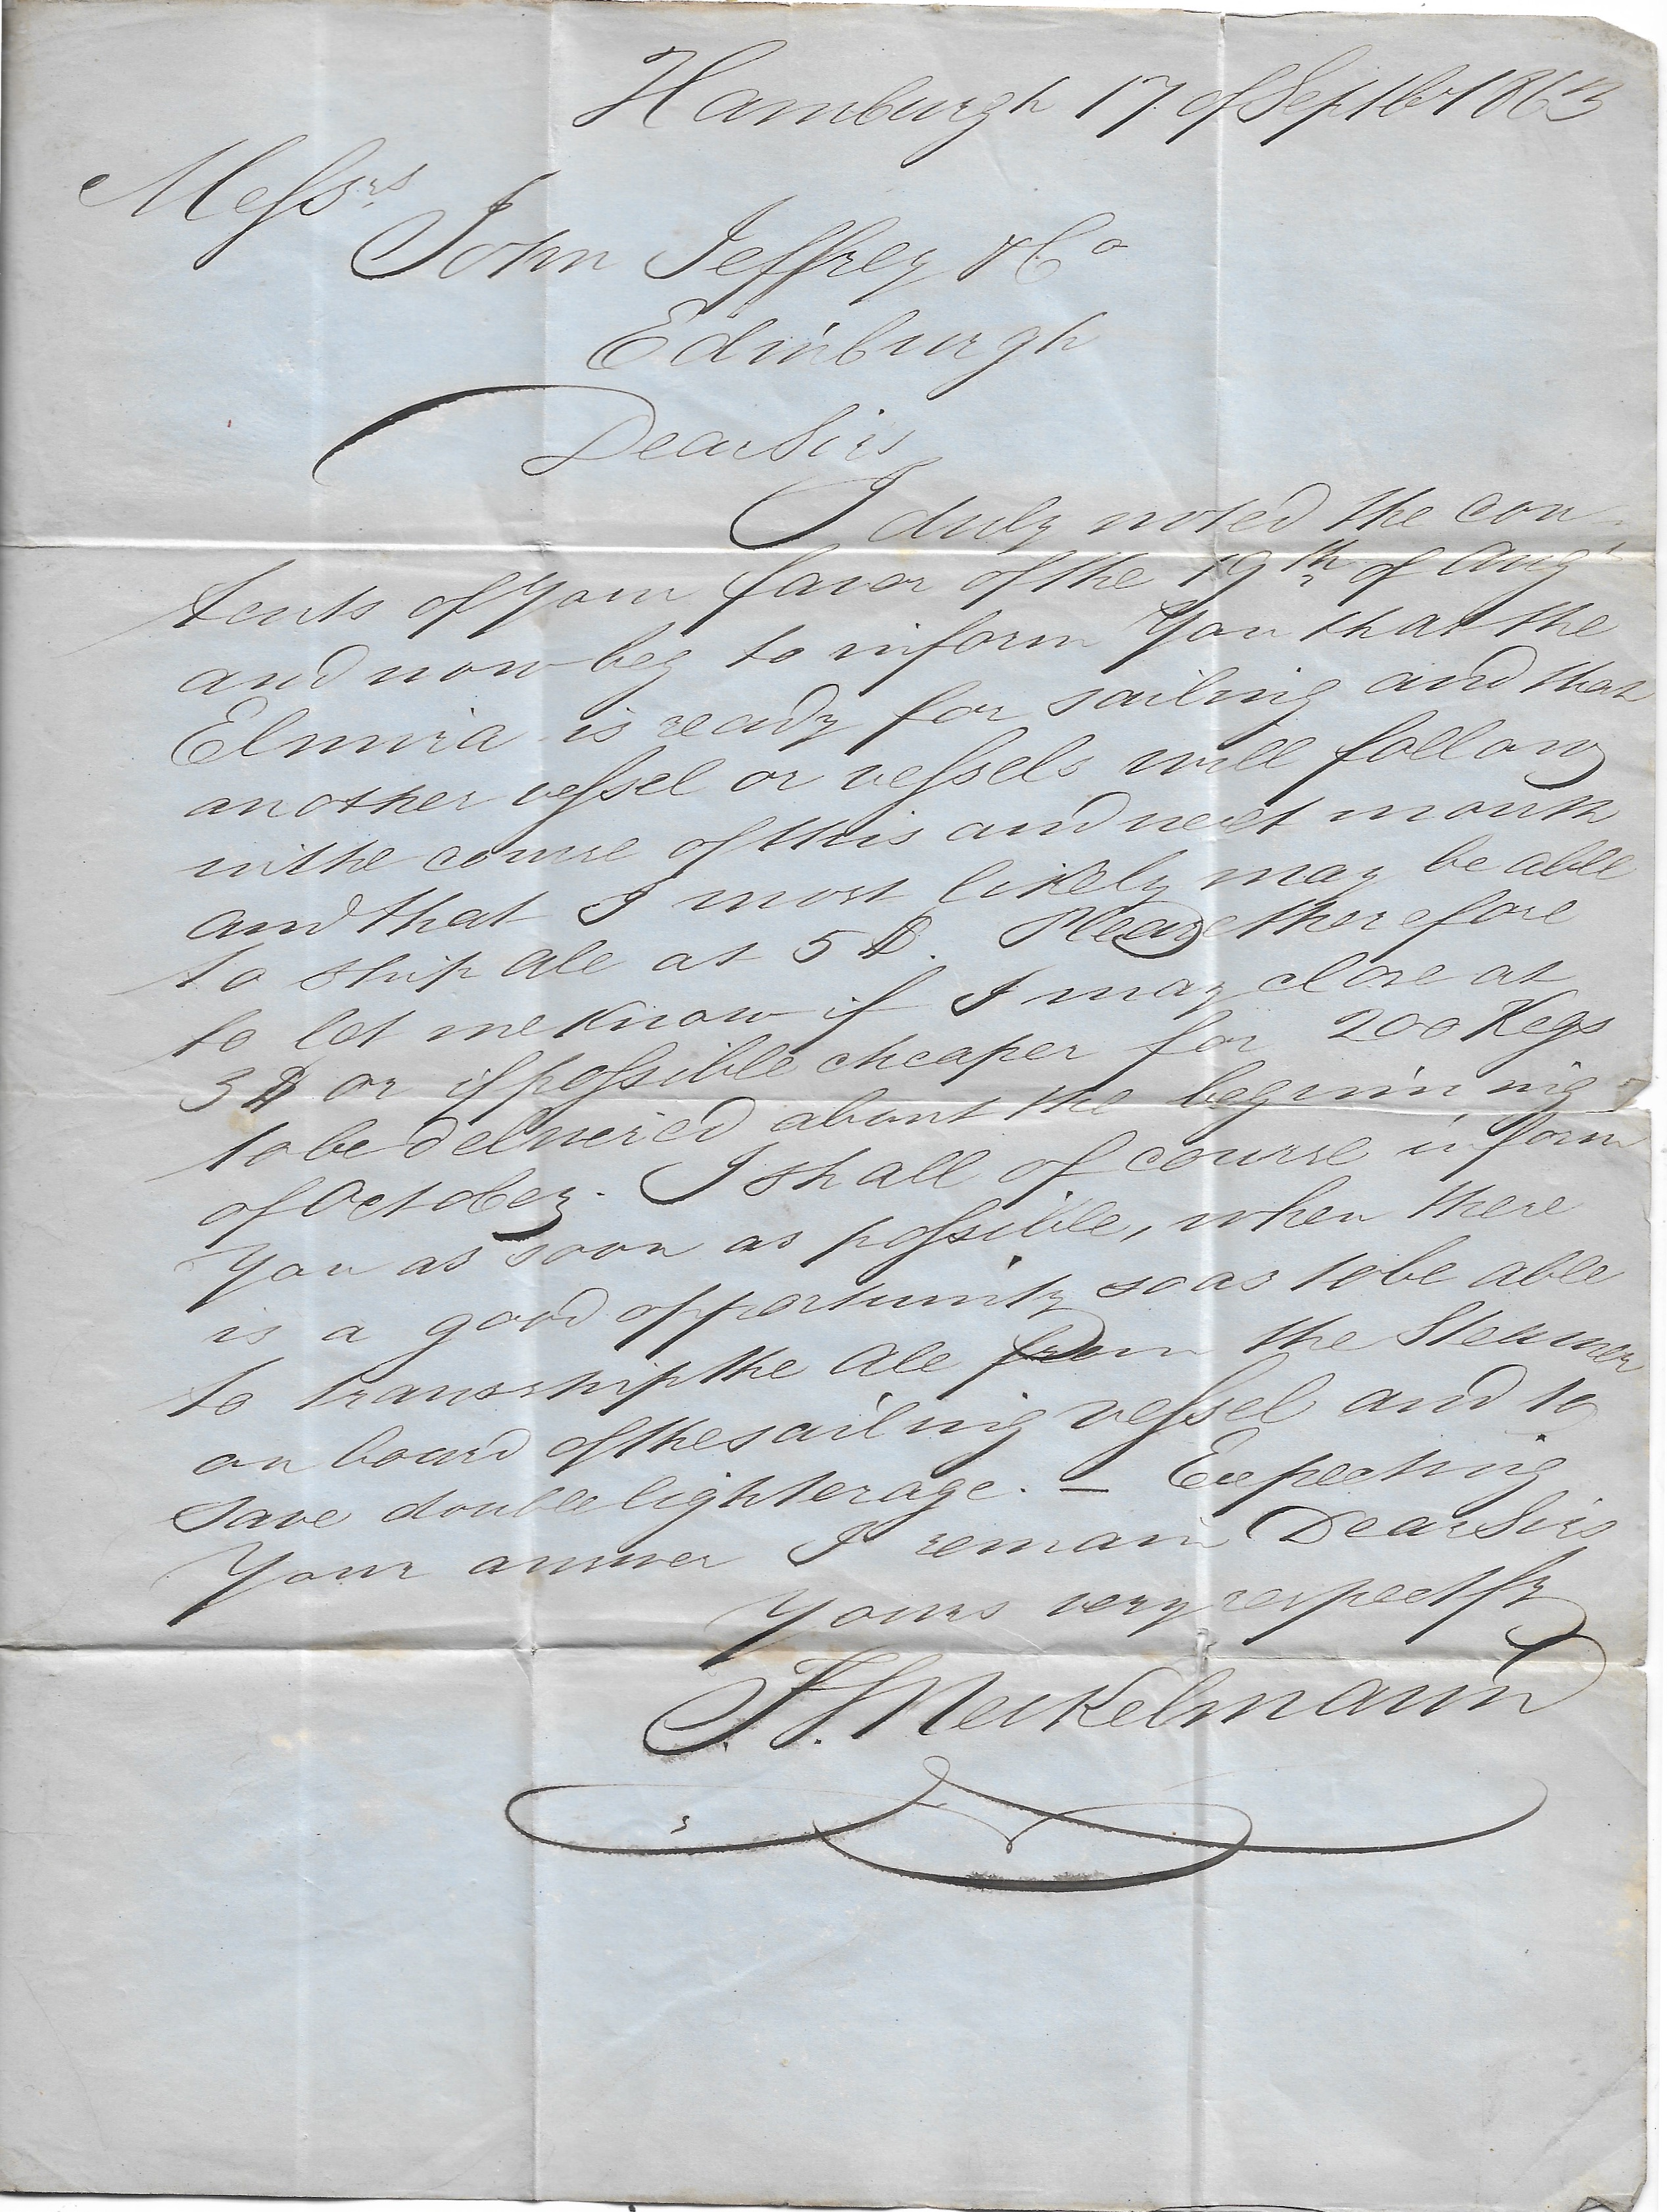 Hamburgh 17 of Septbr 1863
Messrs
John Jeffrey & Co
Edinburgh
Dear Sirs
I duly noted the con-
tents of Your favor of the 19th of Augt
and now beg to inform You that the
is ready for sailing and that
another vessel or vessels will follow
in the course of this and next month
and that I most likely may be able
to ship Ale at 5 $. Please therefore
to let me know if I may close at
3 $ or if possible cheaper for 200 Kegs
to be delivered about the beginning
of October. I shall of course inform
You as soon as possible, when there
is a good opportunity so as to be able
to transship the Ale from the Steamer
on board of the sailing vessel and to
save double lighterage. — Expecting
Your answer I remain Dear Sirs
Yours very respectfy
Meikelmann